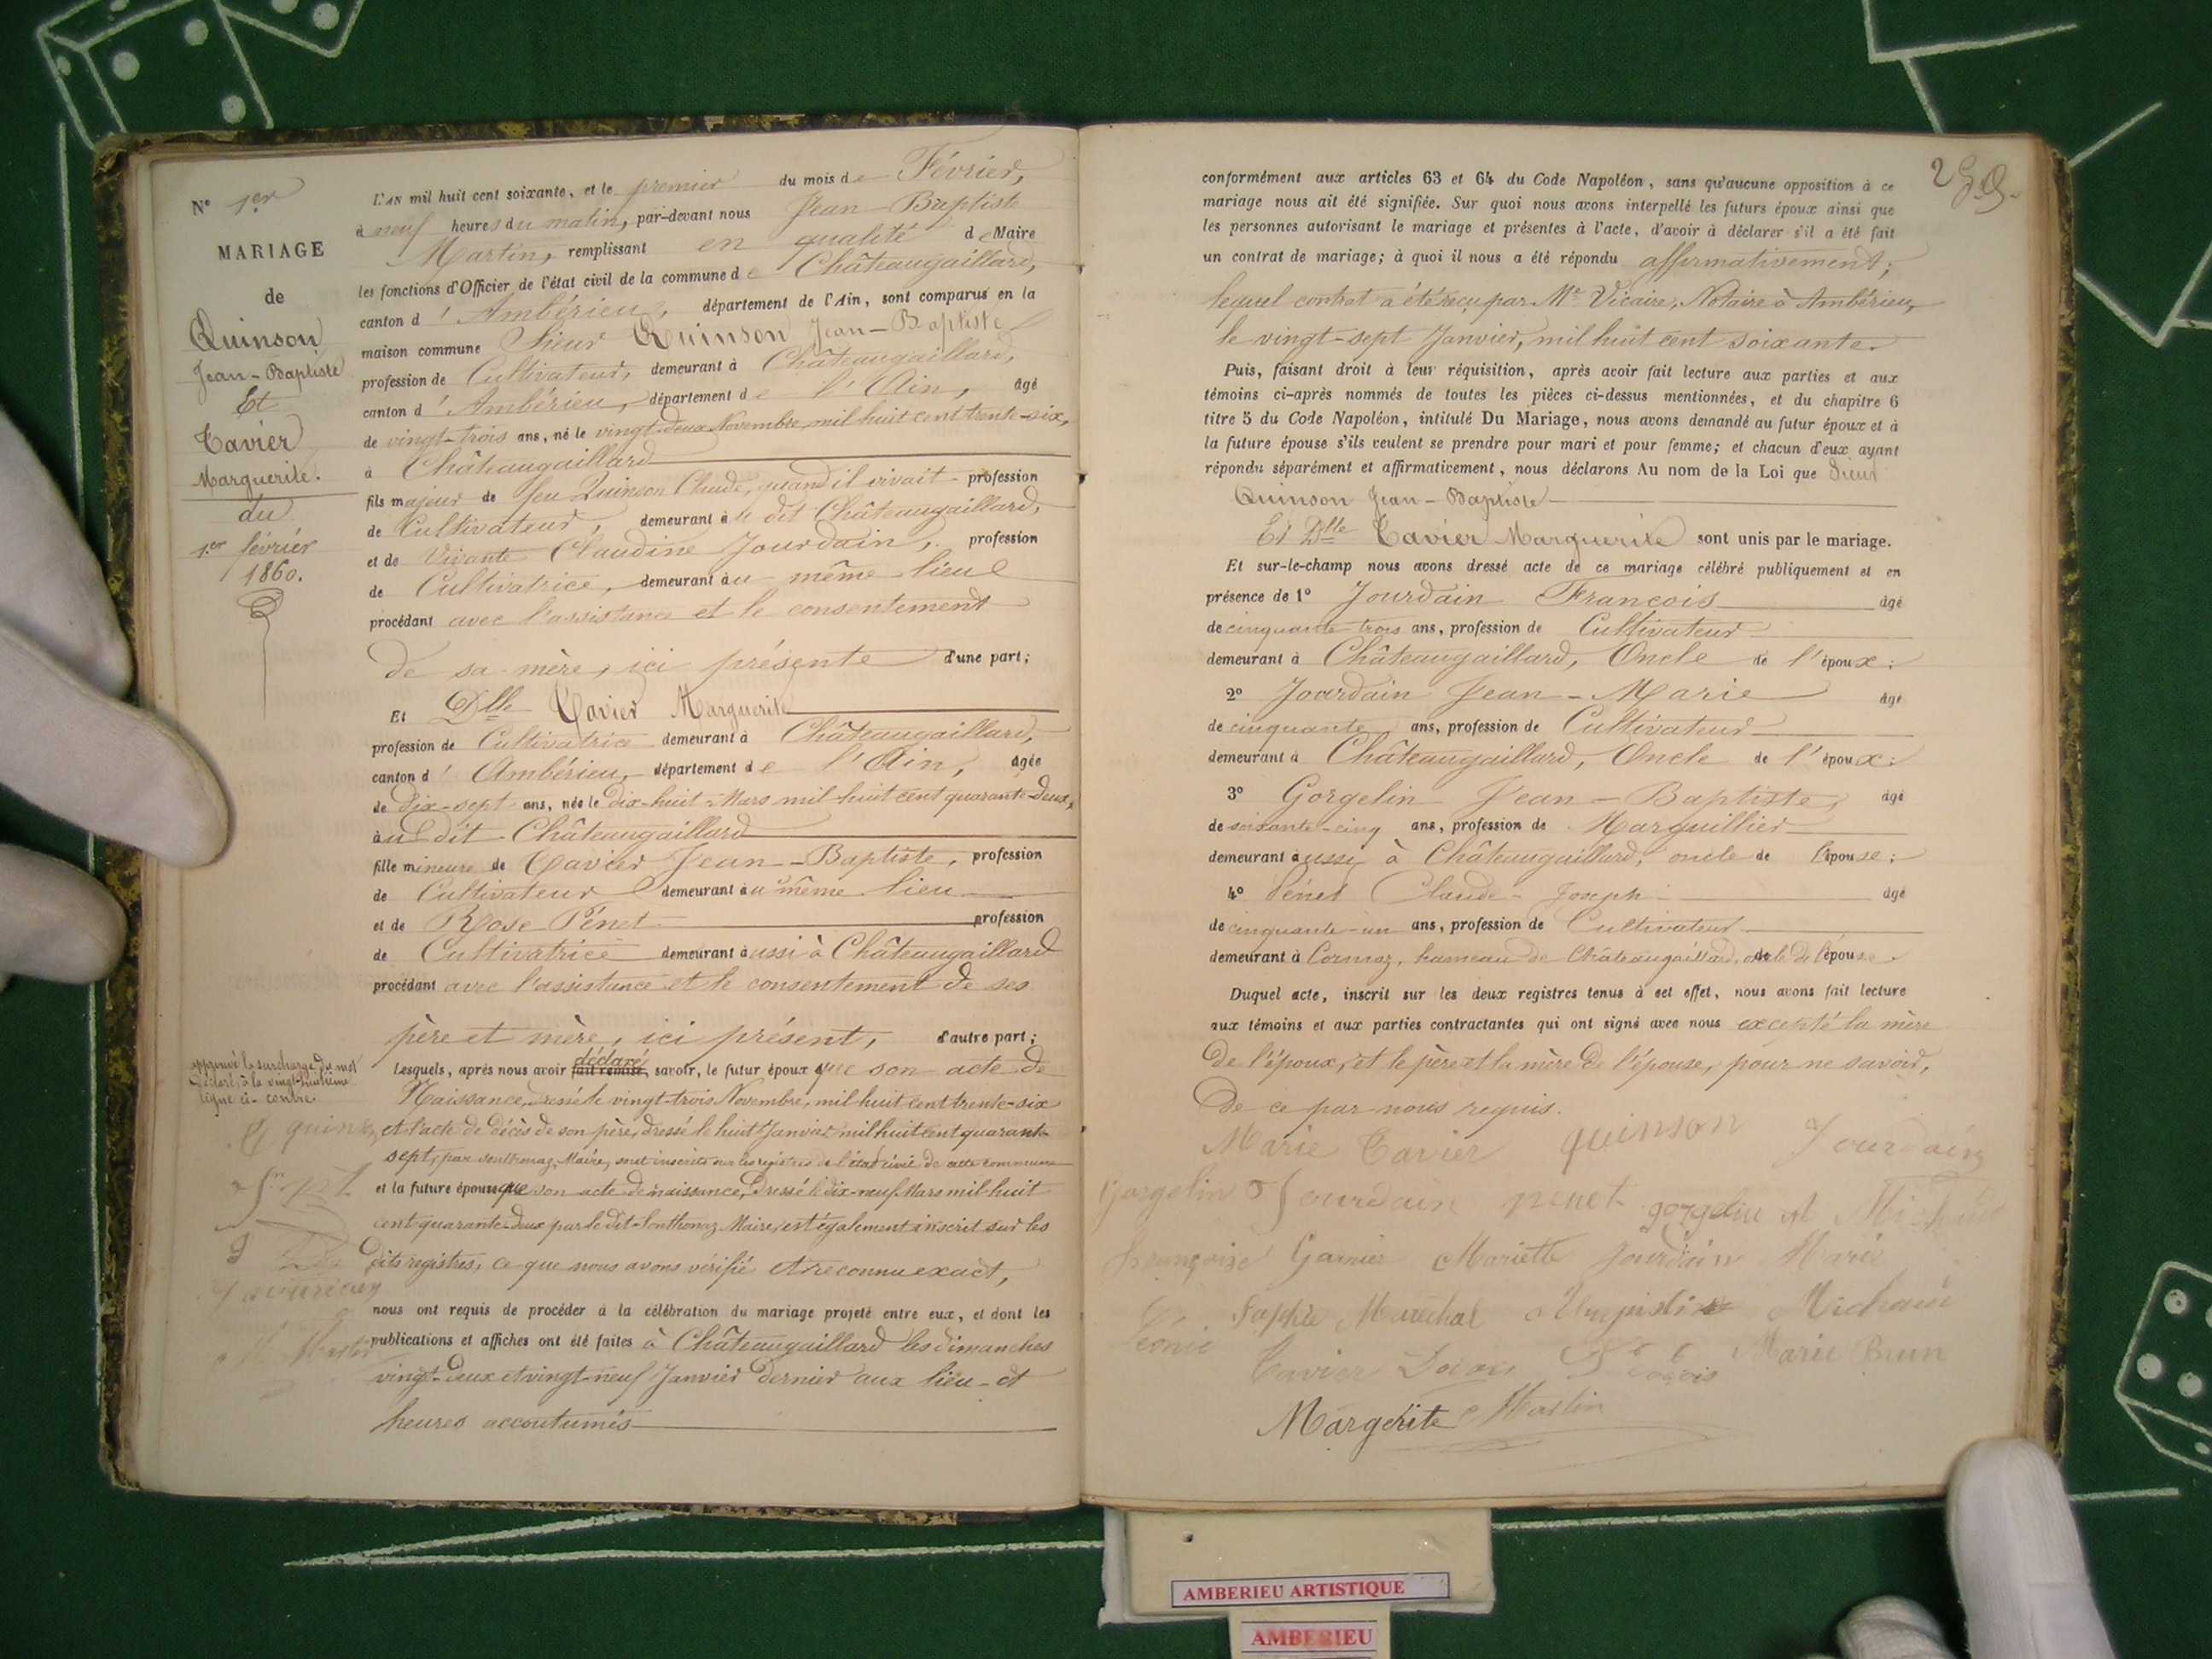 N° 1er
MARIAGE
de
Quinson
Jean-Baptiste
Et
Tavier
Marguerite.
du
1er février
1860.
approuvé la surcharge du mot
déclaré, à la vingt-huitième
ligne ci-contre.
L'AN mil huit cent soixante, et le premier du mois de Février,
à neuf heures du matin, par-devant nous Jean-Baptiste
Martin, remplissant en qualité de Maire
les fonctions d'Officier de l'état civil de la commune de Châteaugaillard,
canton d'Ambérieu, département de l'Ain, sont comparus en la
maison commune Sieur Quinson Jean-Baptiste
profession de Cultivateur, demeurant à Châteaugaillard,
canton d'Ambérieu, département de l'Ain, âgé
de vingt-trois ans, né le vingt-deux Novembre mil huit cent trente-six,
à Châteaugaillard
fils majeur de feu Quinson Claude, quand il vivait profession
de Cultivateur, demeurant à u dit Châteaugaillard,
et de Vivante Claudine Jourdain, profession
de Cultivatrice, demeurant au même lieu
procédant avec l'assistance et le consentement
de sa mère, ici présente d'une part;
Et Dlle Tavier Marguerite
profession de Cultivatrice demeurant à Châteaugaillard,
canton d'Ambérieu, département de l'Ain, âgée
de Dix-sept ans, née le Dix-huit Mars mil huit cent quarante-deux,
au dit Châteaugaillard
fille mineure de Tavier Jean-Baptiste, profession
de Cultivateur demeurant au même lieu
et de Rose Pénet profession
de Cultivatrice demeurant aussi à Châteaugaillard
procédant avec l'assistance et le consentement de ses
père et mère, ici présent, d'autre part;
déclaré
Lesquels, après nous avoir fait remise, savoir, le futur époux que son acte de
Naissance, dressé le vingt-trois Novembre, mil huit cent trente-six
et l'acte de décès de son père, dressé le huit Janvier mil huit cent quarante
sept, par Maire, sont inscrits sur les registres de l'état civil de cette commune
et la future épouse que son acte de naissance, Dressé le dix-neuf Mars mil huit
cent quarante-deux par le dit Maire, est également inscrit sur les
dits registres, ce que nous avons vérifié et reconnu exact,
nous ont requis de procéder à la célébration du mariage projeté entre eux, et dont les
publications et affiches ont été faites à Châteaugaillard les dimanches
vingt-deux et vingt-neuf Janvier dernier aux lieu et
heures accoutumés
conformément aux articles 63 et 64 du Code Napoléon, sans qu'aucune opposition à ce
mariage nous ait été signifiée. Sur quoi nous avons interpellé les futurs époux ainsi que
les personnes autorisant le mariage et présentes à l'acte, d'avoir à déclarer s'il a été fait
un contrat de mariage; à quoi il nous a été répondu affirmativement;
lequel contrat a été reçu par Me Vicaire, Notaire à Ambérieu,
le vingt-sept Janvier, mil huit cent soixante.
Puis, faisant droit à leur réquisition, après avoir fait lecture aux parties et aux
témoins ci-après nommés de toutes les pièces ci-dessus mentionnées, et du chapitre 6
titre 5 du Code Napoléon, intitulé Du Mariage, nous avons demandé au futur époux et à
la future épouse s'ils veulent se prendre pour mari et pour femme; et chacun d'eux ayant
répondu séparément et affirmativement, nous déclarons Au nom de la Loi que Sieur
Quinson Jean-Baptiste
Et Dlle Tavier Marguerite sont unis par le mariage.
Et sur-le-champ nous avons dressé acte de ce mariage célébré publiquement et en
présence de 1° Jourdain François âgé
de cinquante trois ans, profession de Cultivateur
demeurant à Châteaugaillard, Oncle de l'époux;
2° Jourdain Jean-Marie âgé
de cinquante ans, profession de Cultivateur
demeurant à Châteaugaillard, Oncle de l'époux;
3° Gorgelin Jean-Baptiste, âgé
de soixante-cinq ans, profession de Marguillier
demeurant aussi à Châteaugaillard; oncle de l'épouse;
4° Pénet Claude-Joseph âgé
de cinquante-un ans, profession de Cultivateur
demeurant à Cormoz, hameau de Châteaugaillard, oncle de l'épouse.
Duquel acte, inscrit sur les deux registres tenus à cet effet, nous avons fait lecture
aux témoins et aux parties contractantes qui ont signé avec nous excepté la mère
de l'époux, et le père et la mère de l'épouse, pour ne savoir,
De ce par nous requis.
Marie Tavier quinson Jourdain
Gorgelin Jourdain penet gorgelin
françoise Garnier Mariette Jourdain Marie
Sophie Maréchal Michaud
Léonie Tavier Marie Brun
Margerite Martin
AMBERIEU ARTISTIQUE
AMBERIEU